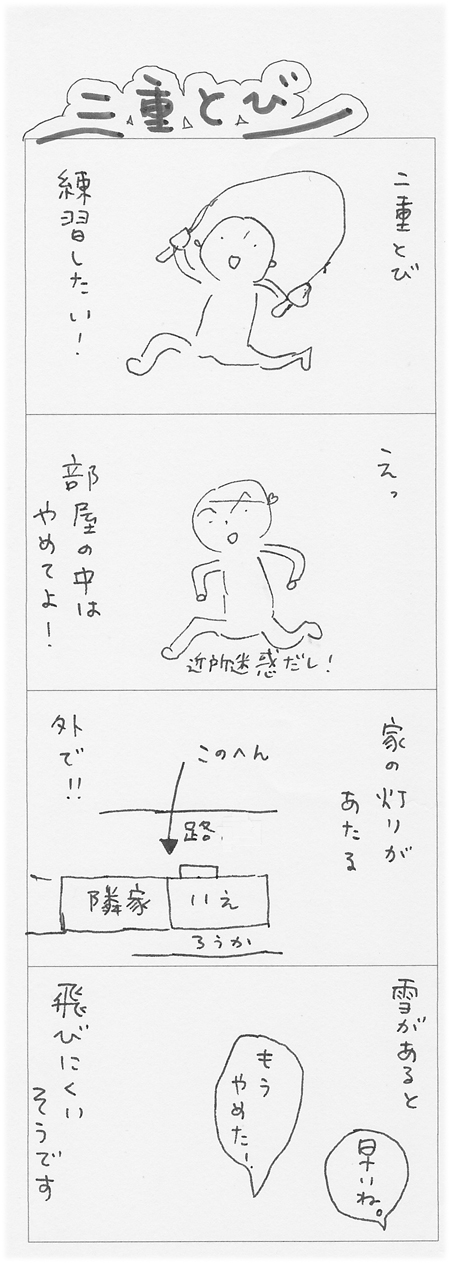 三重とび
二重とび
練習したい!
えっ
部屋の中は
やめてよ!
近所迷惑だし!
家の灯りが
あたる
このへん
路
隣家
いえ
ろうか
外で!!
雪があると
もう
やめた!
早いね。
飛びにくい
そうです